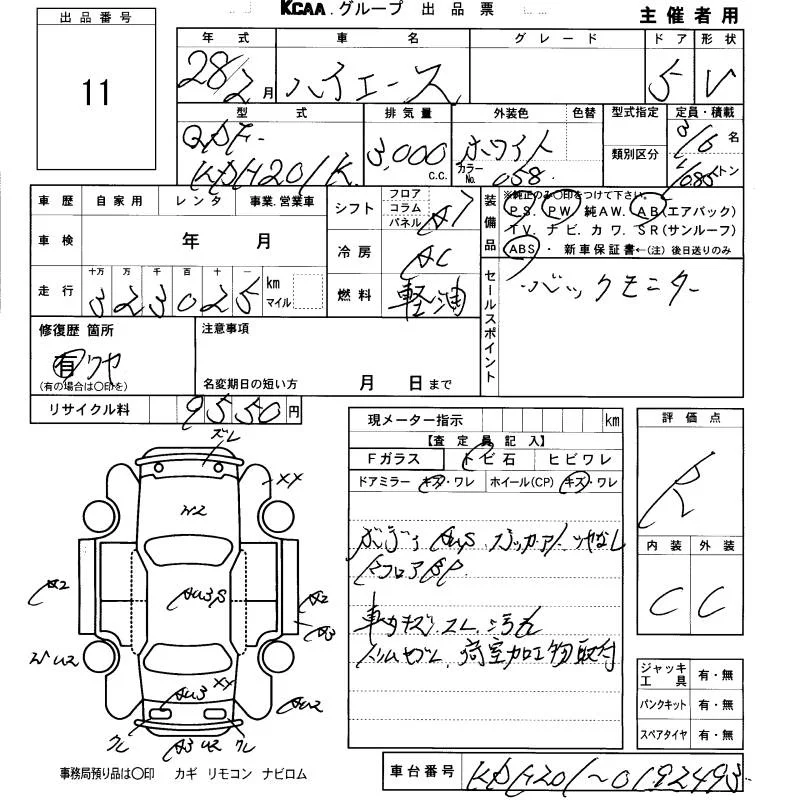 KCAA.グループ 出品票
主催者用
出品番号
11
年式 車名 グレード ドア 形状
28/2月 ハイエース 5 V
型式 排気量 外装色 色替 型式指定 定員・積載
類別区分
QDF-
KDH201K 3,000 C.C. ホワイト カラーNo. 058 3/6名
トン
車歴 自家用 レンタ 事業.営業車
車検 年 月
十万 万 千 百 十 一
走行 323025 km マイル
シフト フロア コラム パネル AT
冷房 AC
燃料 軽油
装備品
※純正のみ〇印をつけて下さい。
PS. PW 純AW. AB(エアバック)
TV. ナビ. カワ. SR(サンルーフ)
ABS・ 新車保証書←(注) 後日送りのみ
セールスポイント
バックモニター
修復歴 箇所
有
(有の場合は〇印を)
注意事項
名変期日の短い方 月 日まで
リサイクル料 9550円
現メーター指示 km
【査定員記入】
Fガラス トビ石 ヒビワレ
ドアミラー キズ・ワレ ホイール(CP) キズ・ワレ
評価点
R
内装 外装
C C
ズレ
XX
W2
A2
AU3S
A2
A3
U2
AU3 XX
AU2
クレ
A3 U2
クレ
荷室加工物取付
ジャッキ工具 有・無
パンクキット 有・無
スペアタイヤ 有・無
事務局預り品は〇印 カギ リモコン ナビロム
車台番号 KDH201～0192493